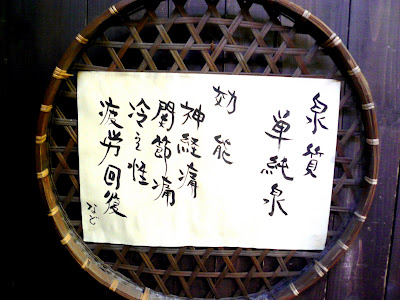 泉質
単純泉
効能
神経痛
関節痛
冷え性
疲労回復
など